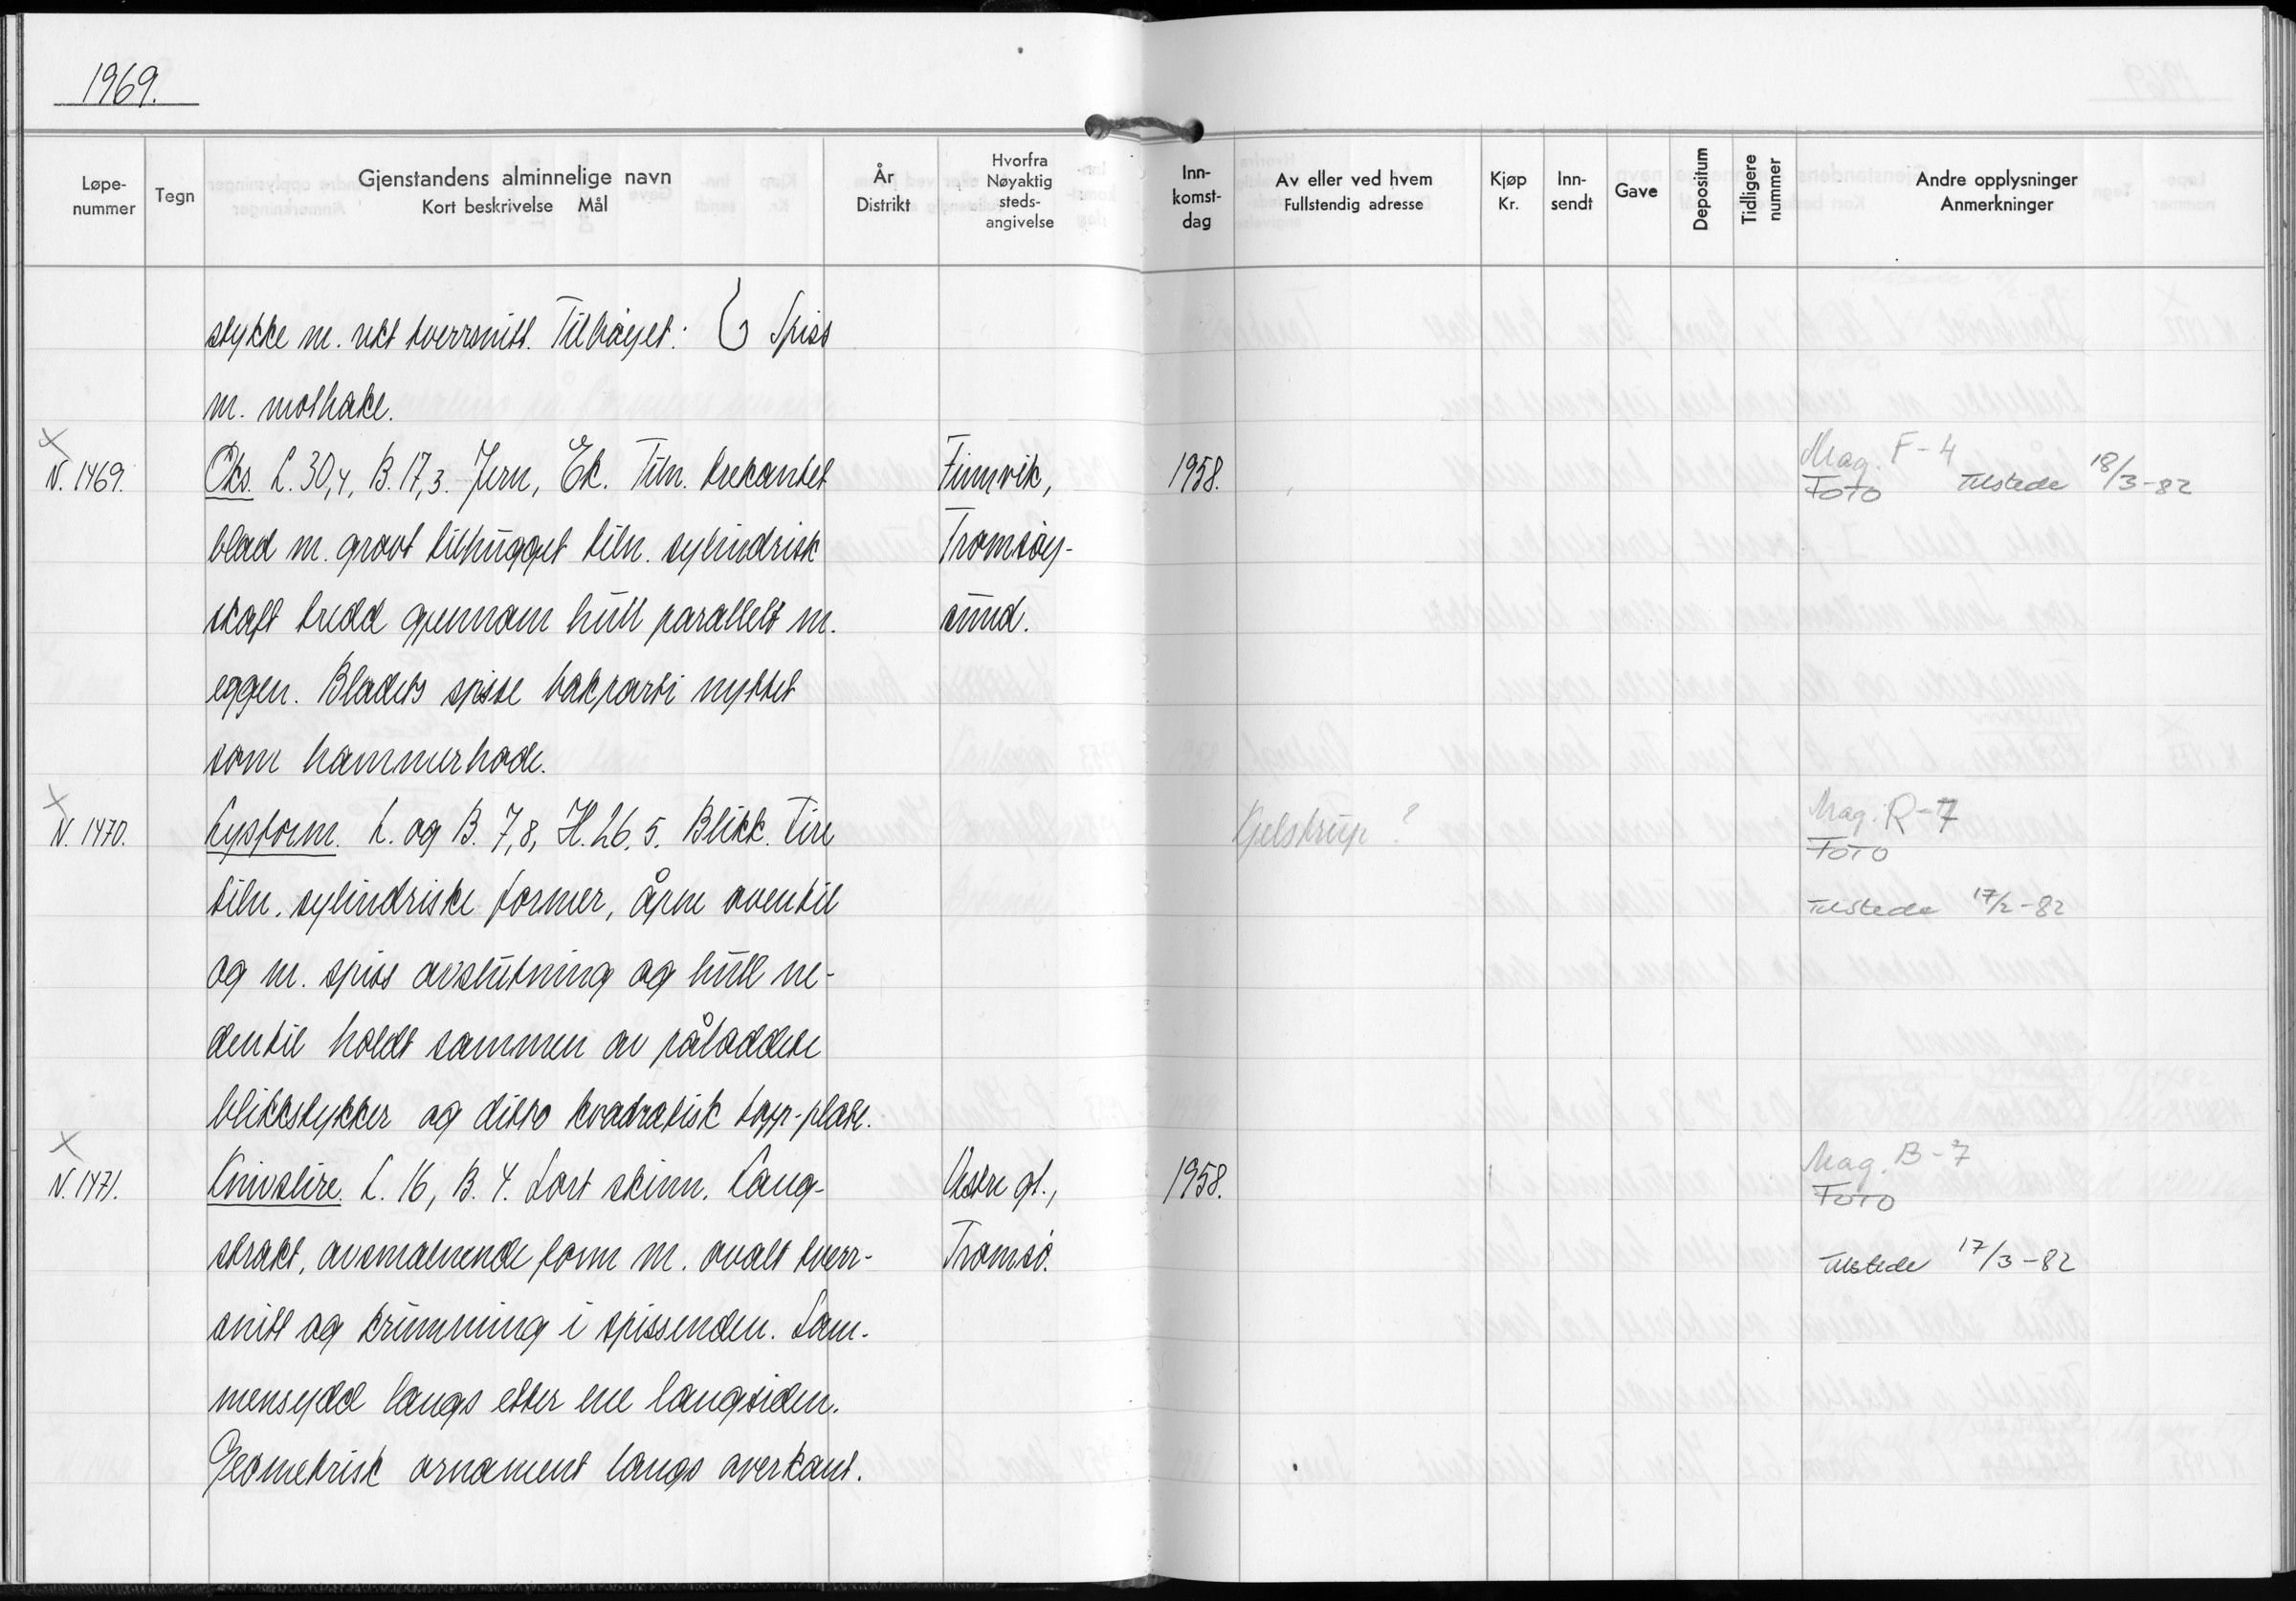 1969.
Løpe-
nummer
Tegn
Gjenstandens alminnelige navn
Kort beskrivelse Mål
År
Distrikt
Hvorfra
Nøyaktig
steds-
angivelse
Inn-
komst-
dag
Av eller ved hvem
Fullstendig adresse
Kjøp
Kr.
Inn-
sendt
Gave
Depositum
Tidligere
nummer
Andre opplysninger
Anmerkninger
stykke m. rkt tverrsnitt. Tilbøyet: Spiss
m. mothake.
x
N. 1469. Øks. L. 30,4, B. 17,3. Jern, Ek. Tiln. trekantet Finnvik, 1958. Mag. F-4
FOTO Tilstede 18/3-82
blad m. grovt tilhugget tiln. sylindrisk Tromsøy-
skaft tredd gjennom hull parallelt m. sund.
eggen. Bladets spisse bakparti nyttet
som hammerhode.
x
N. 1470. Lysform. L. og B. 7,8, H. 26,5. Blikk. Fire Kjelstrup? Mag. R-7
FOTO
tiln. sylindriske former, åpne oventil Tilstede 17/2-82
og m. spiss avslutning og hull ne-
dentil holdt sammen av påloddete
blikkstykker og ditto kvadratisk topp-plate.
x
N. 1471. Knivslire. L. 16, B. 4. Sort skinn. Lang- Vestre gt., 1958. Mag. B-7
FOTO
strakt, avsmalnende form m. ovalt tverr- Tromsø. Tilstede 17/3-82
snitt og krumning i spissenden. Sam-
mensydd langs etter ene langsiden.
Geometrisk ornament langs overkant.